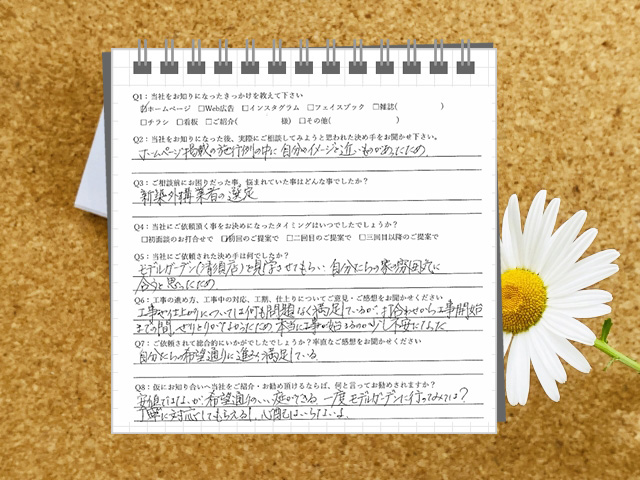 Q1：当社をお知りになったきっかけを教えて下さい
☑ホームページ □Web広告 □インスタグラム □フェイスブック □雑誌( )
□チラシ □看板 □ご紹介( 様) □その他( )
Q2：当社をお知りになった後、実際にご相談してみようと思われた決め手をお聞かせ下さい。
ホームページ掲載の施行例の中に自分のイメージと近いものがあったため
Q3：ご相談前にお困りだった事、悩まれていた事はどんな事でしたか？
新築外構業者の選定
Q4：当社にご依頼頂く事をお決めになったタイミングはいつでしたでしょうか？
□初面談のお打合せで ☑初回のご提案で □二回目のご提案で □三回目以降のご提案で
Q5：当社にご依頼された決め手は何でしたか？
モデルガーデン(須店)を見学させてもらい、自分たちの家の雰囲気に
合うと思ったため
Q6：工事の進め方、工事中の対応、工期、仕上りについてご意見・ご感想をお聞かせください
工事や仕上がりについては何も問題なく満足しているが、打合わせから工事開始
までの間、やりとりがなかったため本当に工事が始まるのか少し不安になった
Q7：ご依頼されて総合的にいかがでしたでしょうか？率直なご感想をお聞かせください
自分たちの希望通りに進み満足している
Q8：仮にお知り合いへ当社をご紹介・お勧め頂けるならば、何と言ってお勧めされますか？
安値ではないが、希望通りのいい庭ができる。一度モデルガーデンに行ってみては？
丁寧に対応してもらえるし、心配はいらないよ。